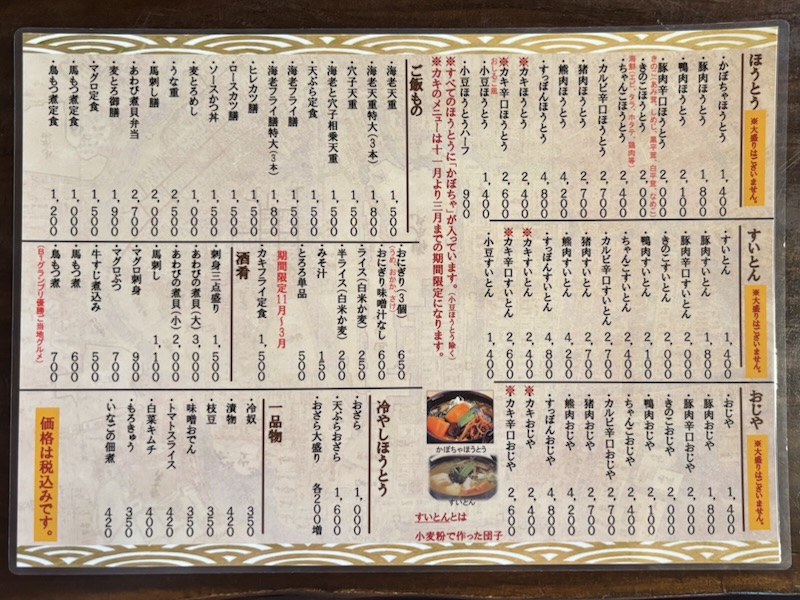 ほうとう ※大盛りはございません。
・かぼちゃほうとう 1,400
・豚肉ほうとう 1,800
・鴨肉ほうとう 2,100
・豚肉辛口ほうとう 2,000
・きのこほうとう 2,000
きのこ(あみ茸、しめじ、黒平茸、白平茸、なめこ)
・ちゃんこほうとう 2,400
海鮮(エビ、タラ、ホタテ、鶏肉等)
・カルビ辛口ほうとう 2,700
・猪肉ほうとう 2,700
・熊肉ほうとう 4,200
・すっぽんほうとう 4,800
※カキほうとう 2,400
※カキ辛口ほうとう 2,600
・小豆ほうとう 1,400
おしるこ風
・小豆ほうとうハーフ 900
※すべてのほうとうに「かぼちゃ」が入っています。(小豆ほうとう除く)
※カキのメニューは十一月より三月までの期間限定になります。
すいとん ※大盛りはございません。
・すいとん 1,400
・豚肉すいとん 1,800
・豚肉辛口すいとん 2,000
・きのこすいとん 2,000
・鴨肉すいとん 2,100
・ちゃんこすいとん 2,400
・カルビ辛口すいとん 2,700
・猪肉すいとん 2,700
・熊肉すいとん 4,200
・すっぽんすいとん 4,800
※カキすいとん 2,400
※カキ辛口すいとん 2,600
・小豆すいとん 1,400
おじや ※大盛りはございません。
・おじや 1,400
・豚肉おじや 1,800
・豚肉辛口おじや 2,000
・きのこおじや 2,000
・鴨肉おじや 2,100
・ちゃんこおじや 2,400
・カルビ辛口おじや 2,700
・猪肉おじや 2,700
・熊肉おじや 4,200
・すっぽんおじや 4,800
※カキおじや 2,400
※カキ辛口おじや 2,600
かぼちゃほうとう
すいとん
すいとんとは
小麦粉で作った団子
ご飯もの
・海老天重 1,500
・海老天重特大(3本) 1,800
・穴子天重 1,500
・海老と穴子相乗天重 1,500
・天ぷら定食 1,500
・海老フライ膳 1,500
・海老フライ膳特大(3本) 1,800
・ヒレカツ膳 1,500
・ロースカツ膳 1,500
・ソースかつ丼 1,000
・麦とろめし 1,000
・うな重 2,500
・馬刺し膳 2,000
・あわび煮貝弁当 2,700
・麦とろ御膳 1,900
・マグロ定食 1,500
・馬もつ煮定食 1,000
・鳥もつ煮定食 1,200
・おにぎり(3個) 650
(うめ、おかか、さけ)
・おにぎり味噌汁なし 600
・ライス(白米か麦) 250
・半ライス(白米か麦) 200
・みそ汁 150
・とろろ単品 500
期間限定11月~3月
・カキフライ定食 1,500
酒肴
・刺身三点盛り 1,500
・あわびの煮貝(大) 3,000
・あわびの煮貝(小) 2,000
・馬刺し 1,100
・マグロ刺身 900
・マグロぶつ 700
・牛すじ煮込み 500
・馬もつ煮 600
・鳥もつ煮 700
(B-1グランプリ優勝ご当地グルメ)
冷やしほうとう
・おざら 1,000
・天ぷらおざら 1,600
・おざら大盛り 各200増
一品物
・冷奴 350
・漬物 420
・枝豆 350
・味噌おでん 350
・トマトスライス 420
・白菜キムチ 400
・もろきゅう 350
・いなごの佃煮 420
価格は税込みです。